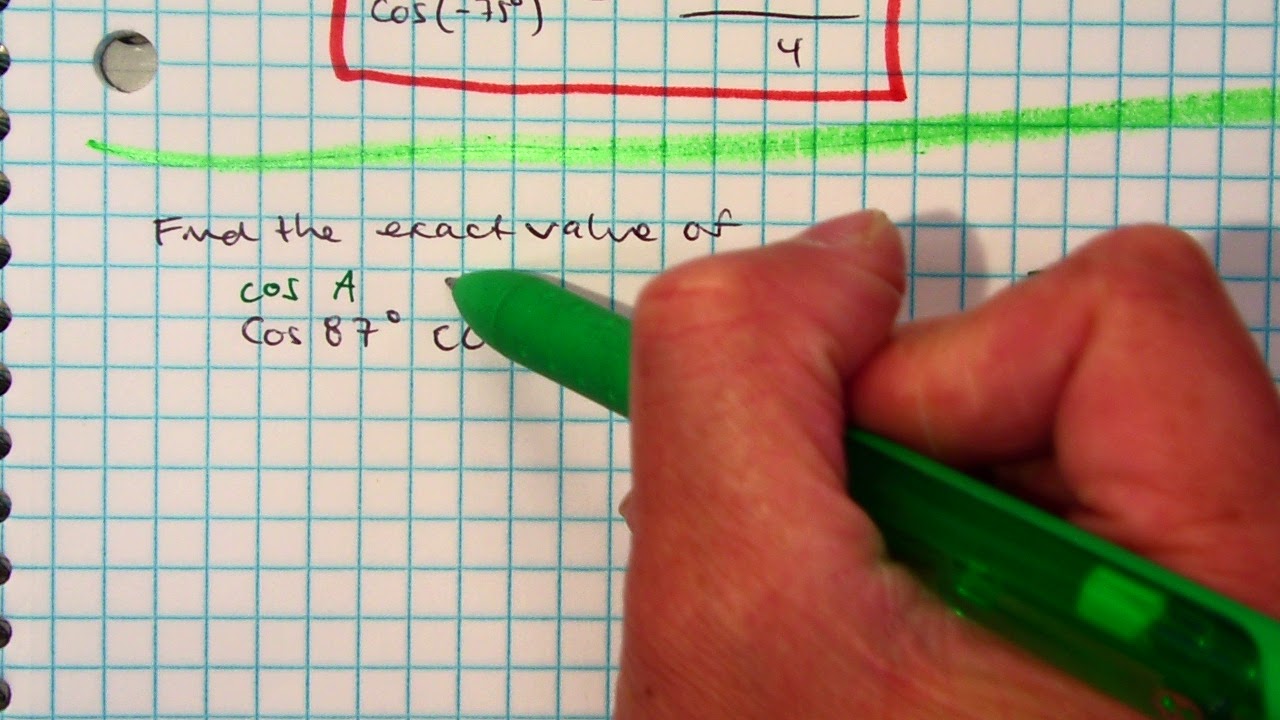 cos(-75°)
4
Find the exact value of
cos A
Cos 87° co